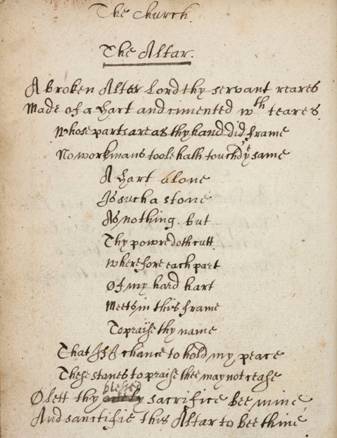 The Church.
The Altar.
A broken Alter Lord thy servant reares
Made of a hart and cimented wth teares.
Whose parts are as thy hand did frame
No workmans toole hath touch'd ye same
A hart alone
Is such a stone
As nothing. but
Thy powre doth cutt.
Wherefore each part
Of my hard hart
Meets in this frame
To praise thy name
That if I chance to hold my peace
These stones to praise thee may not cease
O lett thy blessed sacrifice bee mine
And sanctifie this Altar to bee thine